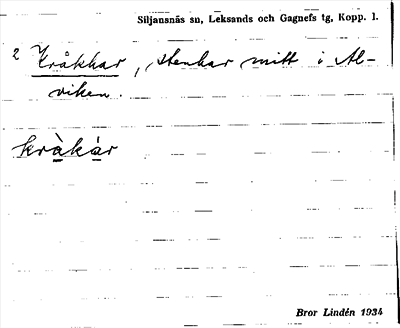 Siljansnäs sn, Leksands och Gagnefs tg, Kopp. l.
2 Kråkkar, stenkar mitt i Al-
viken.
kràkár
Bror Lindén 1934